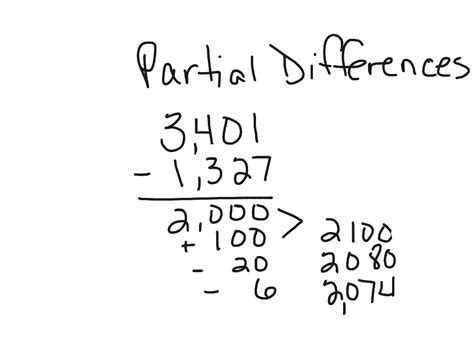 Partial Differences
3,401
- 1,327
2,000 > 2100
+ 100
- 20 2080
- 6 2,074